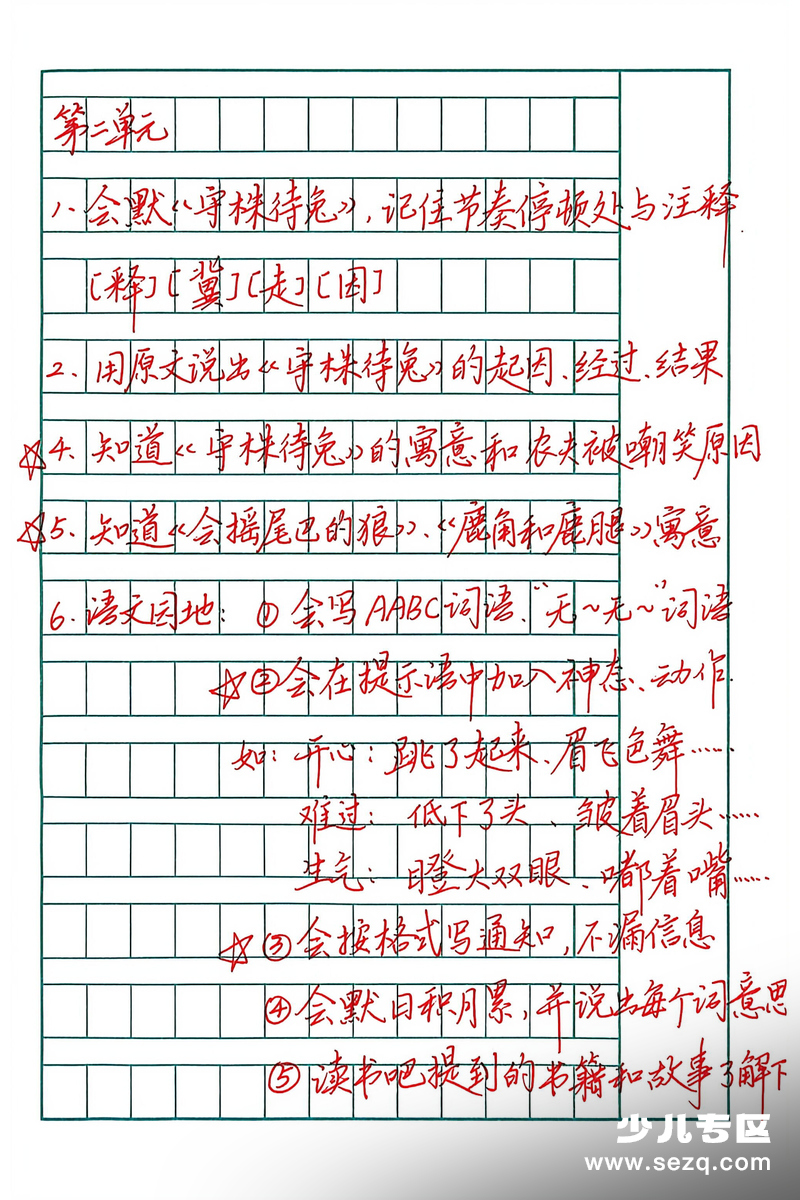 第二单元
1、会默《守株待兔》，记住节奏停顿处与注释
[释][冀][走][因]
2、用原文说出《守株待兔》的起因、经过、结果
☆4、知道《守株待兔》的寓意和农夫被嘲笑原因
☆5、知道《会摇尾巴的狼》、《鹿角和鹿腿》寓意
6、语文园地：①会写AABC词语、“无～无～”词语
☆②会在提示语中加入神态、动作.
如：开心：跳了起来、眉飞色舞……
难过：低下了头、皱着眉头……
生气：瞪大双眼、嘟着嘴……
☆③会按格式写通知，不漏信息
④会默日积月累，并说出每个词意思
⑤读书吧提到的书籍和故事了解下
少儿专区
www.sezq.com